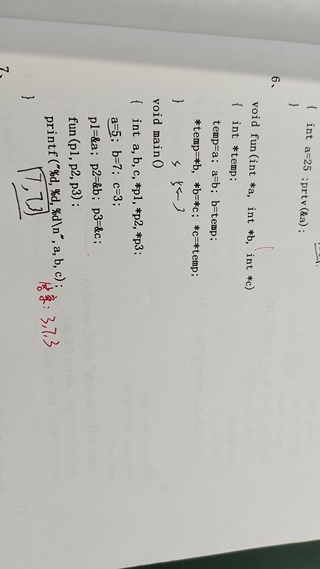 { int a=25 ;prtv(&a);
}
6、
void fun(int *a, int *b, int *c)
{ int *temp;
temp=a; a=b; b=temp;
*temp=*b, *b=*c; *c=*temp;
}
void main()
{ int a,b,c,*p1,*p2,*p3;
a=5; b=7; c=3;
p1=&a; p2=&b; p3=&c;
fun(p1,p2,p3);
printf("%d,%d,%d\n",a,b,c);
}
答案: 3,7,3
7、